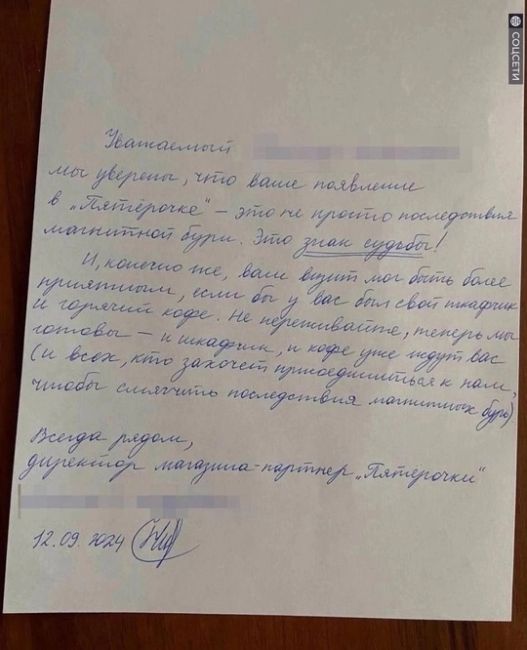 СОЦСЕТИ
Уважаемый
мы уверены, что ваше появление
в „Пятёрочке“ – это не просто последствия
магнитной бури. Это знак судьбы!
И, конечно же, ваш визит мог быть более
приятным, если бы у вас был свой шкафчик
и горячий кофе. Не переживайте, теперь мы
готовы – и шкафчик, и кофе уже ждут вас
(и всех, кто захочет присоединиться к нам,
чтобы смягчить последствия магнитных бурь)
Всегда рядом,
директор магазина-партнер „Пятёрочки“
12.09.2024